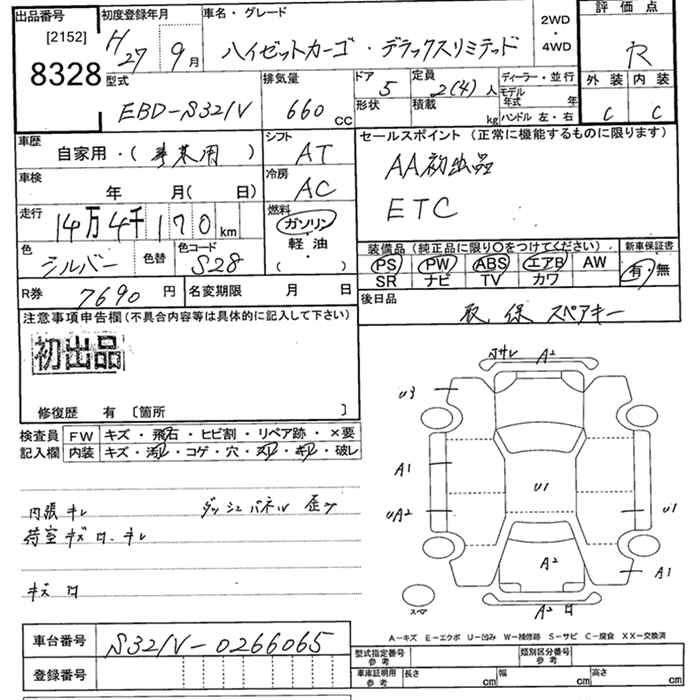 出品番号 初度登録年月 車名・グレード 2WD・4WD 評価点
[2152] 8328 H27 9月 ハイゼットカーゴ・デラックスリミテッド R
外装 内装
C C
型式 排気量 ドア 定員 ディーラー・並行
EBD-S321V 660cc 5 2(4)人 モデル年式 年
形状 積載 kg ハンドル 左・右
車歴 シフト セールスポイント(正常に機能するものに限ります)
自家用・(事業用) AT AA初出品
車検 冷房
年 月(日) AC ETC
走行 燃料
14万4千170km ガソリン・軽油・( )
色 色替 色コード
シルバー S28
装備品(純正品に限り○をつけてください) 新車保証書
PS PW ABS エアB AW 有・無
SR ナビ TV カワ
R券 7690円 名変期限 月 日
後日品 取、保 スペアキー
注意事項申告欄(不具合内容等は具体的に記入して下さい)
初出品
修復歴 有〔箇所 〕
検査員 FW キズ・飛石・ヒビ割・リペア跡・×要
記入欄 内装 キズ・汚れ・コゲ・穴・スレ・キレ・破レ
内張キレ ダッシュパネル 歪ミ
荷室キズ ロ、キレ
キズ ロ
A2
U3
A1
UA2
U1
A2
U1
A1
A2 ロ
スペア
A-キズ E-エクボ U-凹み W-補修跡 S-サビ C-腐食 XX-交換済
車台番号 S321V-0266065
登録番号
型式指定番号 参考 類別区分番号 参考
車庫証明用 参考 長さ cm 幅 cm 高さ cm